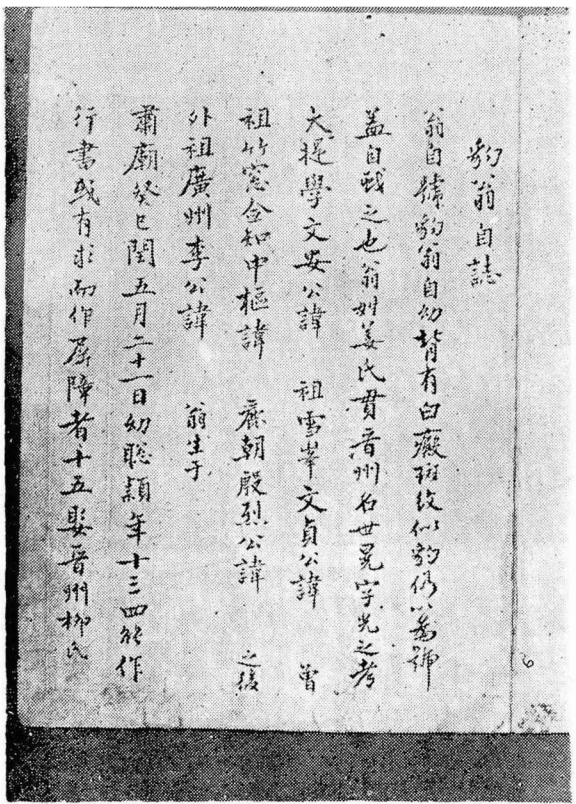 豹翁自誌
翁自號豹翁自幼背有白癜斑紋似豹仍以為號
盖自戲之也翁姓姜氏貫晋州名世晃字光之考
大提學文安公諱 祖雪峯文貞公諱 曾
祖竹窓僉知中樞諱 麗朝殷烈公諱 之後
外祖廣州李公諱 翁生于
肅廟癸巳閏五月二十一日幼聡頴年十三四能作
行書或有求而作屛障者十五娶晋州柳氏
6